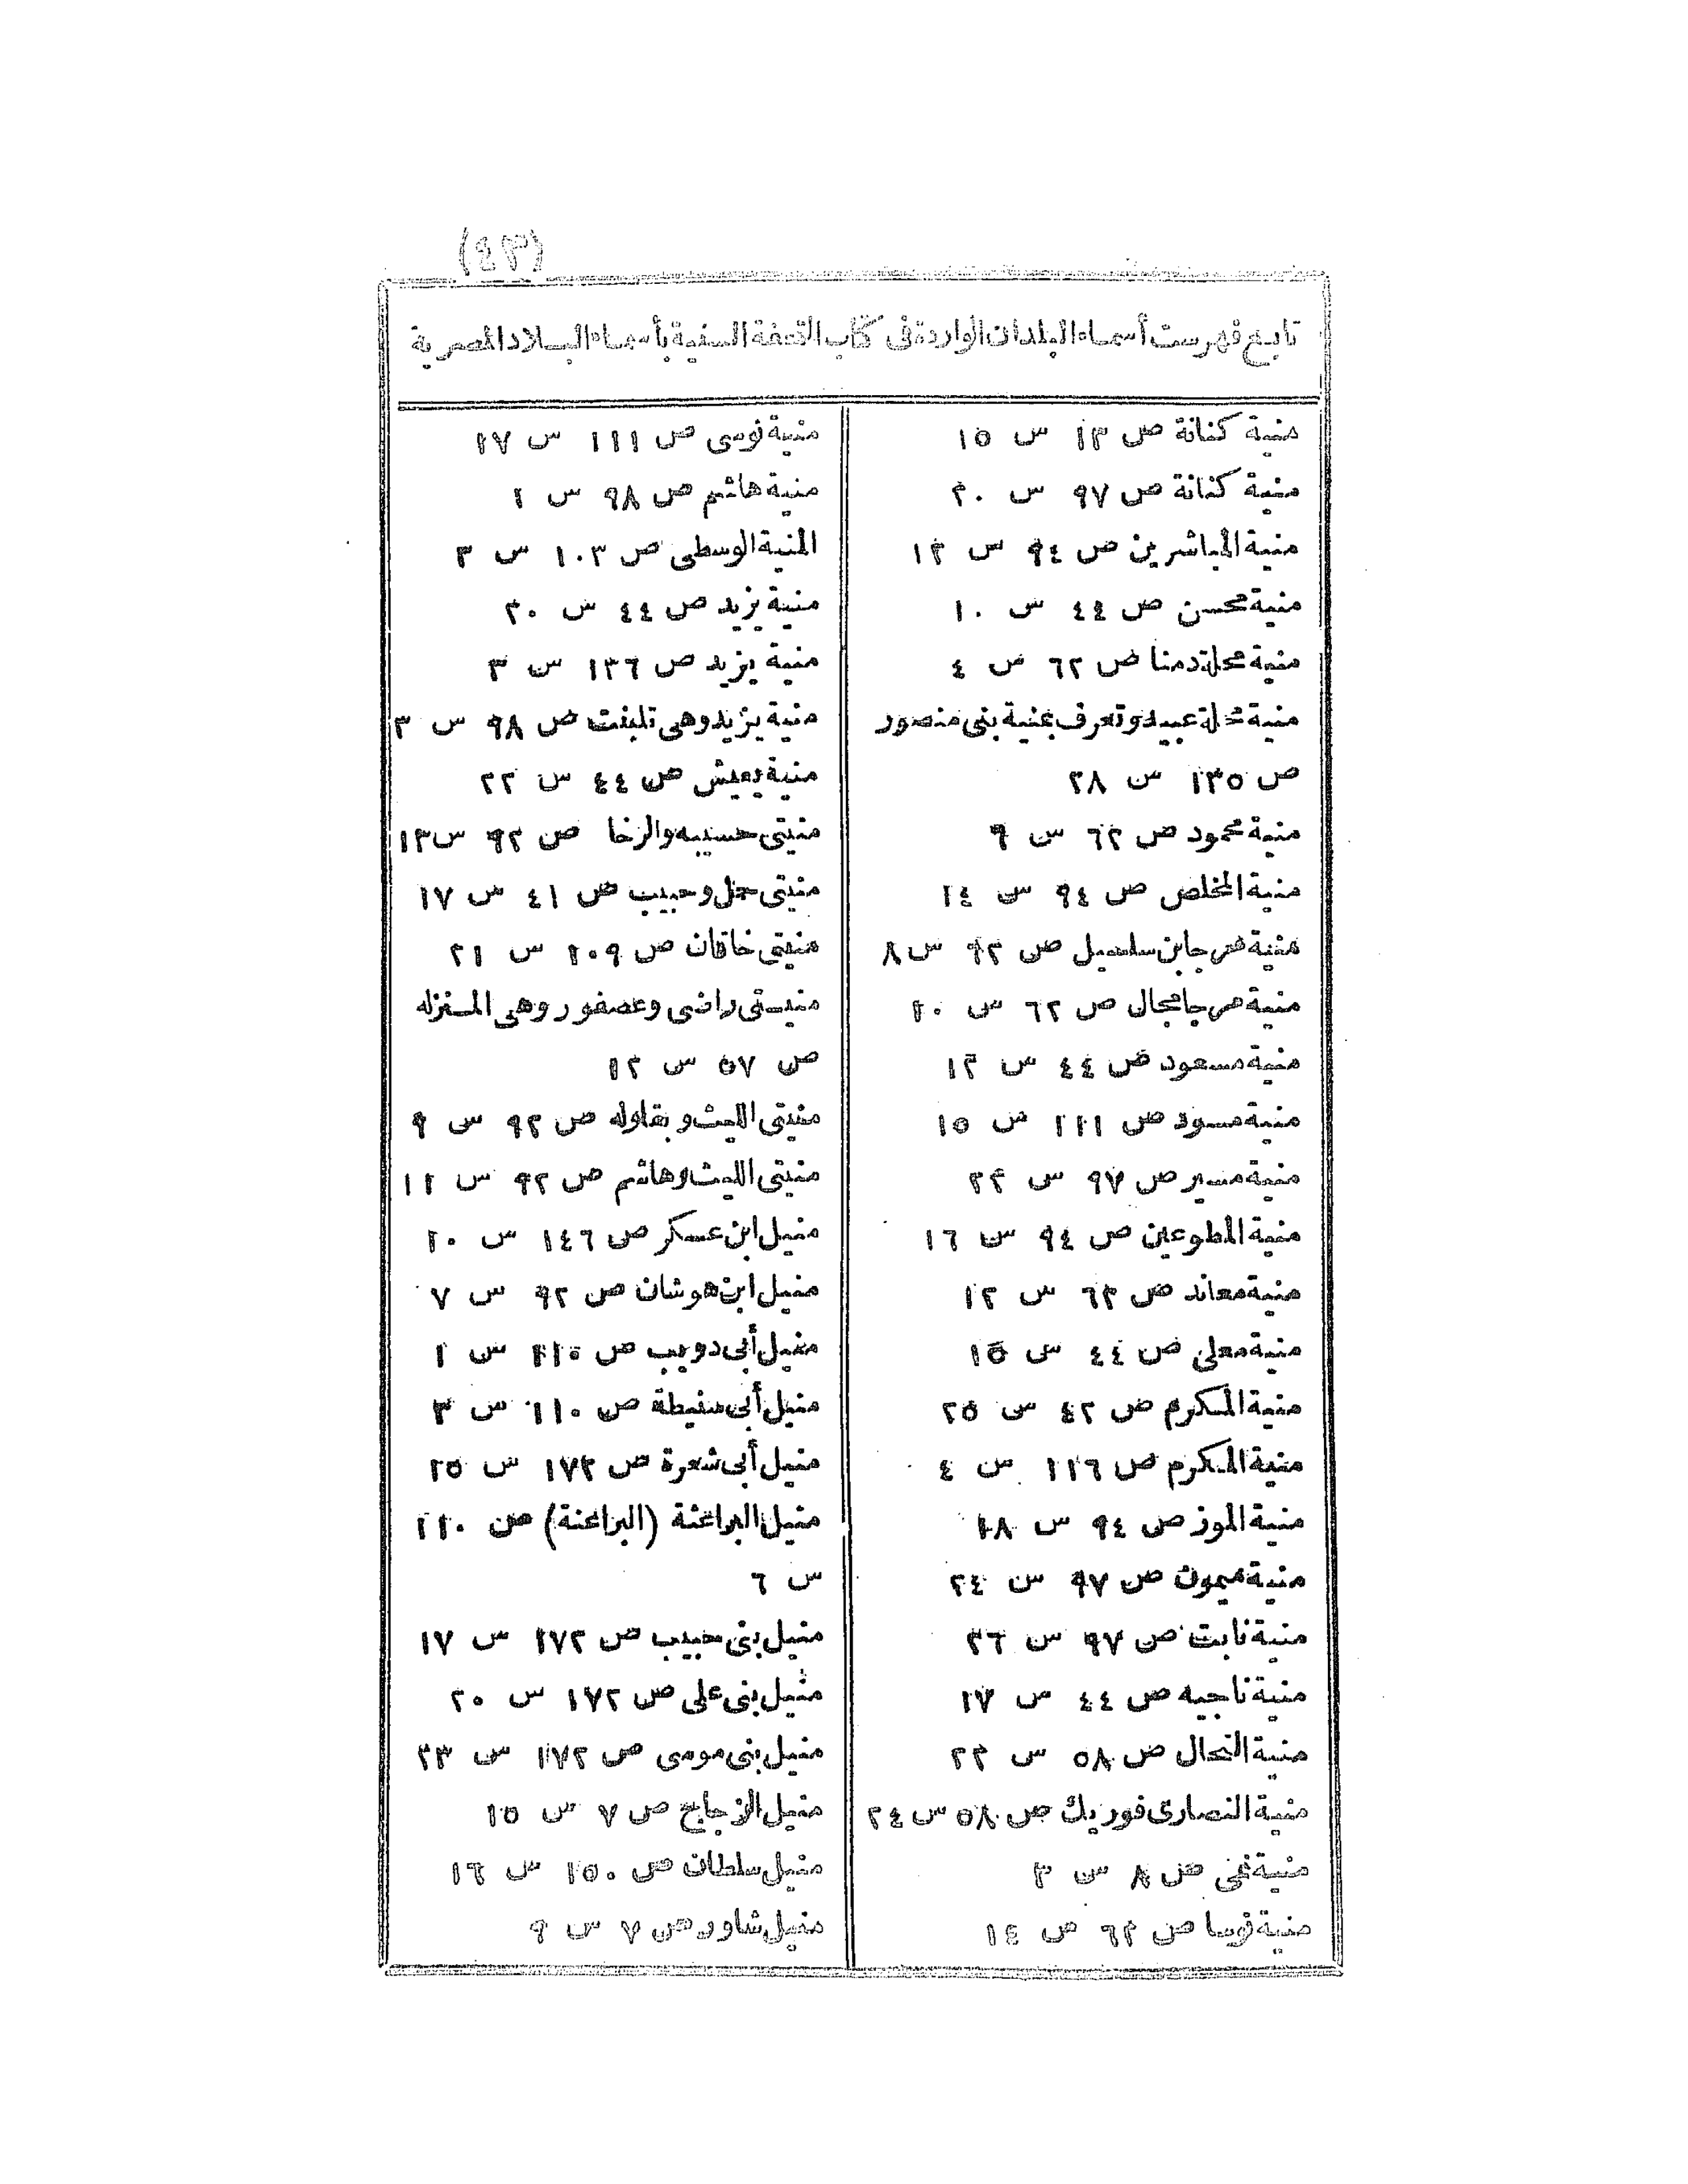 (٤٣)
تابع فهرست أسماء البلدان الواردة فى كتاب التحفة السنية بأسماء البلاد المصرية
منية كنانة ص ١٣ س ١٥
منية كنانة ص ٩٧ س ٢٠
منية المباشرين ص ٩٤ س ١٢
منية محسن ص ٤٤ س ١٠
منية محلة دمنا ص ٦٢ س ٤
منية محلة عبيد وتعرف بمنية بنى منصور
ص ١٣٥ س ٢٨
منية محمود ص ٦٢ س ٩
منية المخلص ص ٩٤ س ١٤
منية مرجا بن سلسيل ص ٦٢ س ٨
منية مرجا مجال ص ٦٢ س ١٠
منية مسعود ص ٤٤ س ١٢
منية مسود ص ١١١ س ١٥
منية مسير ص ٩٧ س ٢٢
منية المطوعين ص ٩٤ س ١٦
منية معاند ص ٦٢ س ١٢
منية معلى ص ٤٤ س ١٥
منية المكرم ص ٤٢ س ٢٥
منية المكرم ص ١١٦ س ٤
منية الموز ص ٩٤ س ١٨
منية ميمون ص ٩٧ س ٢٤
منية نابت ص ٩٧ س ٢٦
منية ناجيه ص ٤٤ س ١٧
منية النحال ص ٥٨ س ٢٢
منية النصارى فوريك ص ٥٨ س ٢٤
منية نمى ص ٨ س ٣
منية نوسا ص ٦٢ س ١٤
منية نوسى ص ١١١ س ١٧
منية هاشم ص ٩٨ س ١
المنية الوسطى ص ١٠٣ س ٣
منية يزيد ص ٤٤ س ٢٠
منية يزيد ص ١٣٦ س ٣
منية يزيد وهى تلبنت ص ٩٨ س ٣
منية يعيش ص ٤٤ س ٢٢
منيتى حسيبه والرخا ص ٩٢ س ١٣
منيتى حمل وحبيب ص ٤١ س ١٧
منيتى خاقان ص ١٠٩ س ٢١
منيتى راضى وعصفور وهى المنزله
ص ٥٧ س ١٢
منيتى الليث وبقاوله ص ٩٢ س ٩
منيتى الليث وهاشم ص ٩٢ س ١١
منيل ابن عسكر ص ١٤٦ س ١٠
منيل ابن هوشان ص ٩٢ س ٧
منيل أبى دويب ص ١١٠ س ١
منيل أبى سنيطة ص ١١٠ س ٣
منيل أبى شعرة ص ١٧٢ س ١٥
منيل البراغثة (البراغنة) ص ١١٠
س ٦
منيل بنى حبيب ص ١٧٢ س ١٧
منيل بنى على ص ١٧٢ س ٢٠
منيل بنى موسى ص ١٧٢ س ٢٣
منيل الزجاج ص ٧ س ١٥
منيل سلطان ص ١٥٠ س ١٦
منيل شاور ص ٧ س ٩